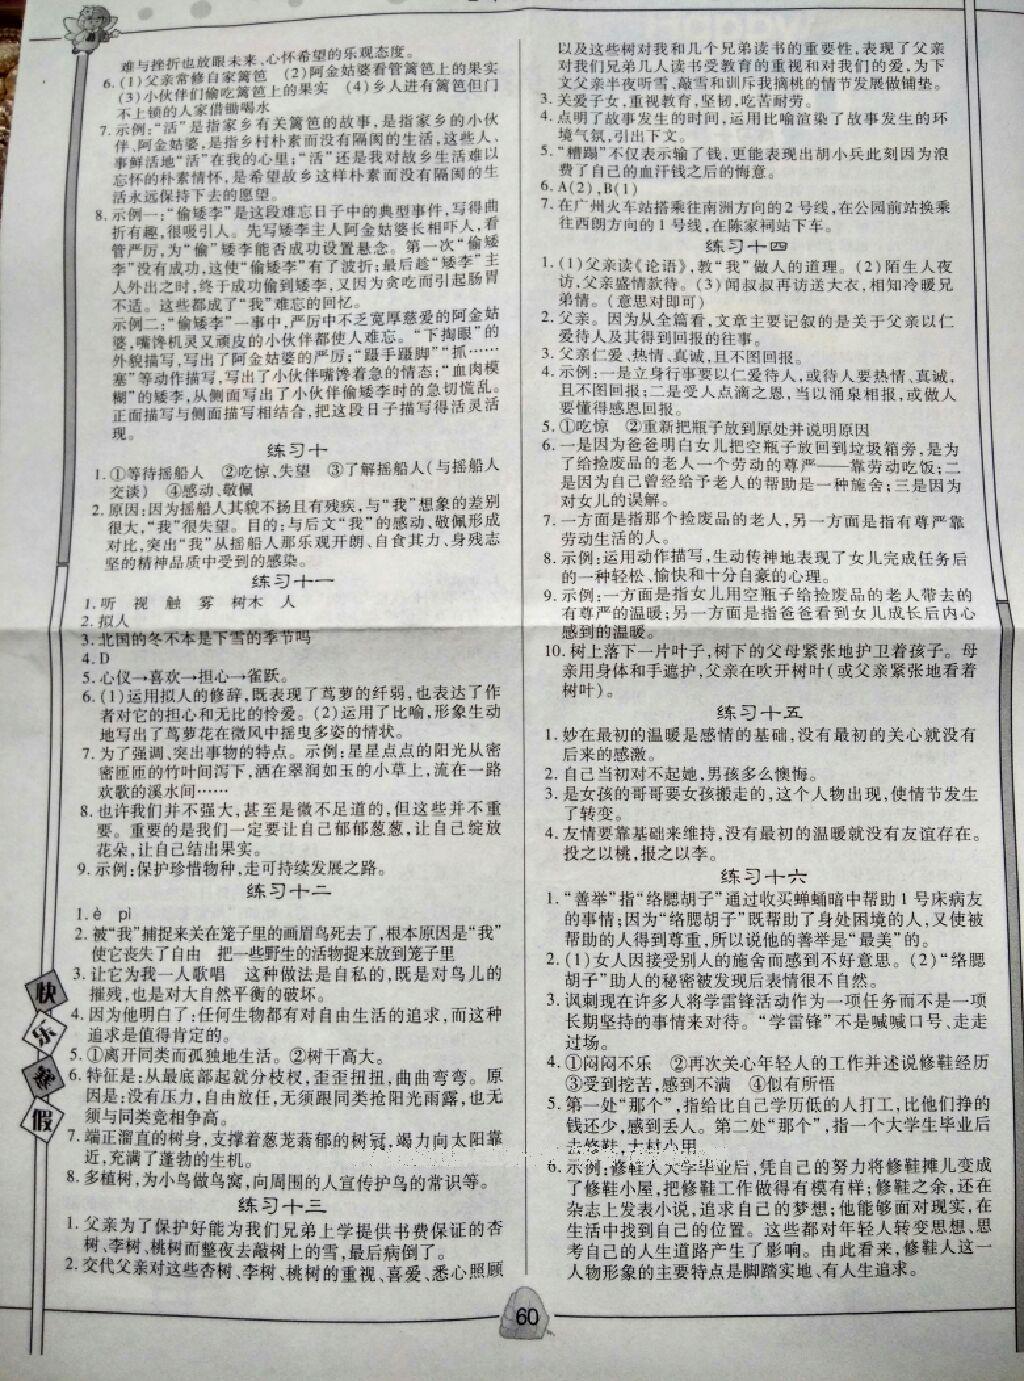 难与挫折也放眼未来、心怀希望的乐观态度。
6.(1)父亲常修自家篱笆 (2)阿金姑婆看管篱笆上的果实
(3)小伙伴们偷吃篱笆上的果实 (4)乡人进有篱笆但门
不上锁的人家借锄喝水
7.示例:“活”是指家乡有关篱笆的故事,是指家乡的小伙
伴、阿金姑婆,是指乡村朴素而没有隔阂的生活,这些人、
事鲜活地“活”在我的心里;“活”还是我对故乡生活难以
忘怀的朴素情怀,是希望故乡这样朴素而没有隔阂的生
活永远保持下去的愿望。
8.示例一:“偷矮李”是这段难忘日子中的典型事件,写得曲
折有趣,很吸引人。先写矮李主人阿金姑婆长相吓人,看
管严厉,为“偷”矮李能否成功设置悬念。第一次“偷矮
李”没有成功,这使“偷矮李”有了波折;最后趁“矮李”主
人外出之时,终于成功偷到矮李,又因为贪吃而引起肠胃
不适。这些都成了“我”难忘的回忆。
示例二:“偷矮李”一事中,严厉中不乏宽厚慈爱的阿金姑
婆,嘴馋机灵又顽皮的小伙伴都使人难忘。“下掏眼”的
外貌描写,写出了阿金姑婆的严厉;“蹑手蹑脚”“抓……
塞”等动作描写,写出了小伙伴嘴馋着急的情态;“血肉模
糊”的矮李,从侧面写出了小伙伴偷矮李时的急切慌乱。
正面描写与侧面描写相结合,把这段日子描写得活灵活
现。
练习十
1.①等待摇船人 ②吃惊、失望 ③了解摇船人(与摇船人
交谈) ④感动、敬佩
2.原因:因为摇船人其貌不扬且有残疾,与“我”想象的差别
很大,“我”很失望。目的:与后文“我”的感动、敬佩形成
对比,突出“我”从摇船人那乐观开朗、自食其力、身残志
坚的精神品质中受到的感染。
练习十一
1.听 视 触 雾 树木 人
2.拟人
3.北国的冬不本是下雪的季节吗
4.D
5.心仪→喜欢→担心→雀跃。
6.(1)运用拟人的修辞,既表现了茑萝的纤弱,也表达了作
者对它的担心和无比的怜爱。(2)运用了比喻,形象生动
地写出了茑萝花在微风中摇曳多姿的情状。
7.为了强调、突出事物的特点。示例:星星点点的阳光从密
密匝匝的竹叶间泻下,洒在翠润如玉的小草上,流在一路
欢歌的溪水间……
8.也许我们并不强大,甚至是微不足道的,但这些并不重
要。重要的是我们一定要让自己郁郁葱葱,让自己绽放
花朵,让自己结出果实。
9.示例:保护珍惜物种,走可持续发展之路。
练习十二
1.è pì
2.被“我”捕捉来关在笼子里的画眉鸟死去了,根本原因是“我”
使它丧失了自由 把一些野生的活物捉来放到笼子里
3.让它为我一人歌唱 这种做法是自私的,既是对鸟儿的
摧残,也是对大自然平衡的破坏。
4.因为他明白了:任何生物都有对自由生活的追求,而这种
追求是值得肯定的。
5.①离开同类而孤独地生活。②树干高大。
6.特征是:从最底部起就分枝杈,歪歪扭扭,曲曲弯弯。原
因是:没有压力,自由放任,无须跟同类抢阳光雨露,也无
须与同类竞相争高。
7.端正溜直的树身,支撑着葱茏蓊郁的树冠,竭力向太阳靠
近,充满了蓬勃的生机。
8.多植树,为小鸟做鸟窝,向周围的人宣传护鸟的常识等。
练习十三
1.父亲为了保护好能为我们兄弟上学提供书费保证的杏
树、李树、桃树而整夜去敲树上的雪,最后病倒了。
2.交代父亲对这些杏树、李树、桃树的重视、喜爱、悉心照顾
以及这些树对我和几个兄弟读书的重要性,表现了父亲
对我们兄弟几人读书受教育的重视和对我们的爱,为下
文父亲半夜听雪、敲雪和训斥我摘桃的情节发展做铺垫。
3.关爱子女,重视教育,坚韧,吃苦耐劳。
4.点明了故事发生的时间,运用比喻渲染了故事发生的环
境气氛,引出下文。
5.“糟蹋”不仅表示输了钱,更能表现出胡小兵此刻因为浪
费了自己的血汗钱之后的悔意。
6.A(2),B(1)
7.在广州火车站搭乘往南洲方向的2号线,在公园前站换乘
往西朗方向的1号线,在陈家祠站下车。
练习十四
1.(1)父亲读《论语》,教“我”做人的道理。(2)陌生人夜
访,父亲盛情款待。(3)闻叔叔再访送大衣,相知冷暖兄
弟情。(意思对即可)
2.父亲。因为从全篇看,文章主要记叙的是关于父亲以仁
爱待人及其得到回报的往事。
3.父亲仁爱、热情、真诚,且不图回报。
4.示例:一是立身行事要以仁爱待人,或待人要热情、真诚,
且不图回报;二是受人点滴之恩,当以涌泉相报,或做人
要懂得感恩回报。
5.①吃惊 ②重新把瓶子放到原处并说明原因
6.一是因为爸爸明白女儿把空瓶子放回到垃圾箱旁,是为
了给捡废品的老人一个劳动的尊严——靠劳动吃饭;二
是因为自己曾经给予老人的帮助是一种施舍;三是因为
对女儿的误解。
7.一方面是指那个捡废品的老人,另一方面是指有尊严靠
劳动生活的人。
8.示例:运用动作描写,生动传神地表现了女儿完成任务后
的一种轻松、愉快和十分自豪的心理。
9.示例:一方面是指女儿用空瓶子给捡废品的老人带去的
有尊严的温暖;另一方面是指爸爸看到女儿成长后内心
感到的温暖。
10.树上落下一片叶子,树下的父母紧张地护卫着孩子。母
亲用身体和手遮护,父亲在吹开树叶(或父亲紧张地看着
树叶)。
练习十五
1.妙在最初的温暖是感情的基础,没有最初的关心就没有
后来的感激。
2.自己当初对不起她,男孩多么懊悔。
3.是女孩的哥哥要女孩搬走的,这个人物出现,使情节发生
了转变。
4.友情要靠基础来维持,没有最初的温暖就没有友谊存在。
投之以桃,报之以李。
练习十六
1.“善举”指“络腮胡子”通过收买蝉蛹暗中帮助1号床病友
的事情;因为“络腮胡子”既帮助了身处困境的人,又使被
帮助的人得到尊重,所以说他的善举是“最美”的。
2.(1)女人因接受别人的施舍而感到不好意思。(2)“络腮
胡子”助人的秘密被发现后表情很不自然。
3.讽刺现在许多人将学雷锋活动作为一项任务而不是一项
长期坚持的事情来对待。“学雷锋”不是喊喊口号、走走
过场。
4.①闷闷不乐 ②再次关心年轻人的工作并述说修鞋经历
③受到挖苦,感到不满 ④似有所悟
5.第一处“那个”,指给比自己学历低的人打工,比他们挣的
钱还少,感到丢人。第二处“那个”,指一个大学生毕业后
去修鞋,大材小用。
6.示例:修鞋人大学毕业后,凭自己的努力将修鞋摊儿变成
了修鞋小屋,把修鞋工作做得有模有样;修鞋之余,还在
杂志上发表小说,追求自己的梦想;他能够面对现实,在
生活中找到自己的位置。这些都对年轻人转变思想、思
考自己的人生道路产生了影响。由此看来,修鞋人这一
人物形象的主要特点是脚踏实地、有人生追求。
快
乐
寒
假
60